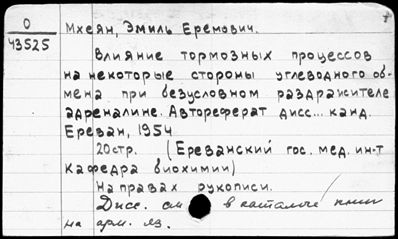 О
43525
Мхеян, Эмиль Еремович.
Влияние тормозных процессов
на некоторые стороны углеводного об-
мена при безусловном раздражителе
адреналине. Автореферат дисс... канд.
Ереван, 1954
20стр. (Ереванский гос. мед. ин-т
Кафедра биохимии)
На правах рукописи.
Дисс. см в каталоге книг
на арм. яз.